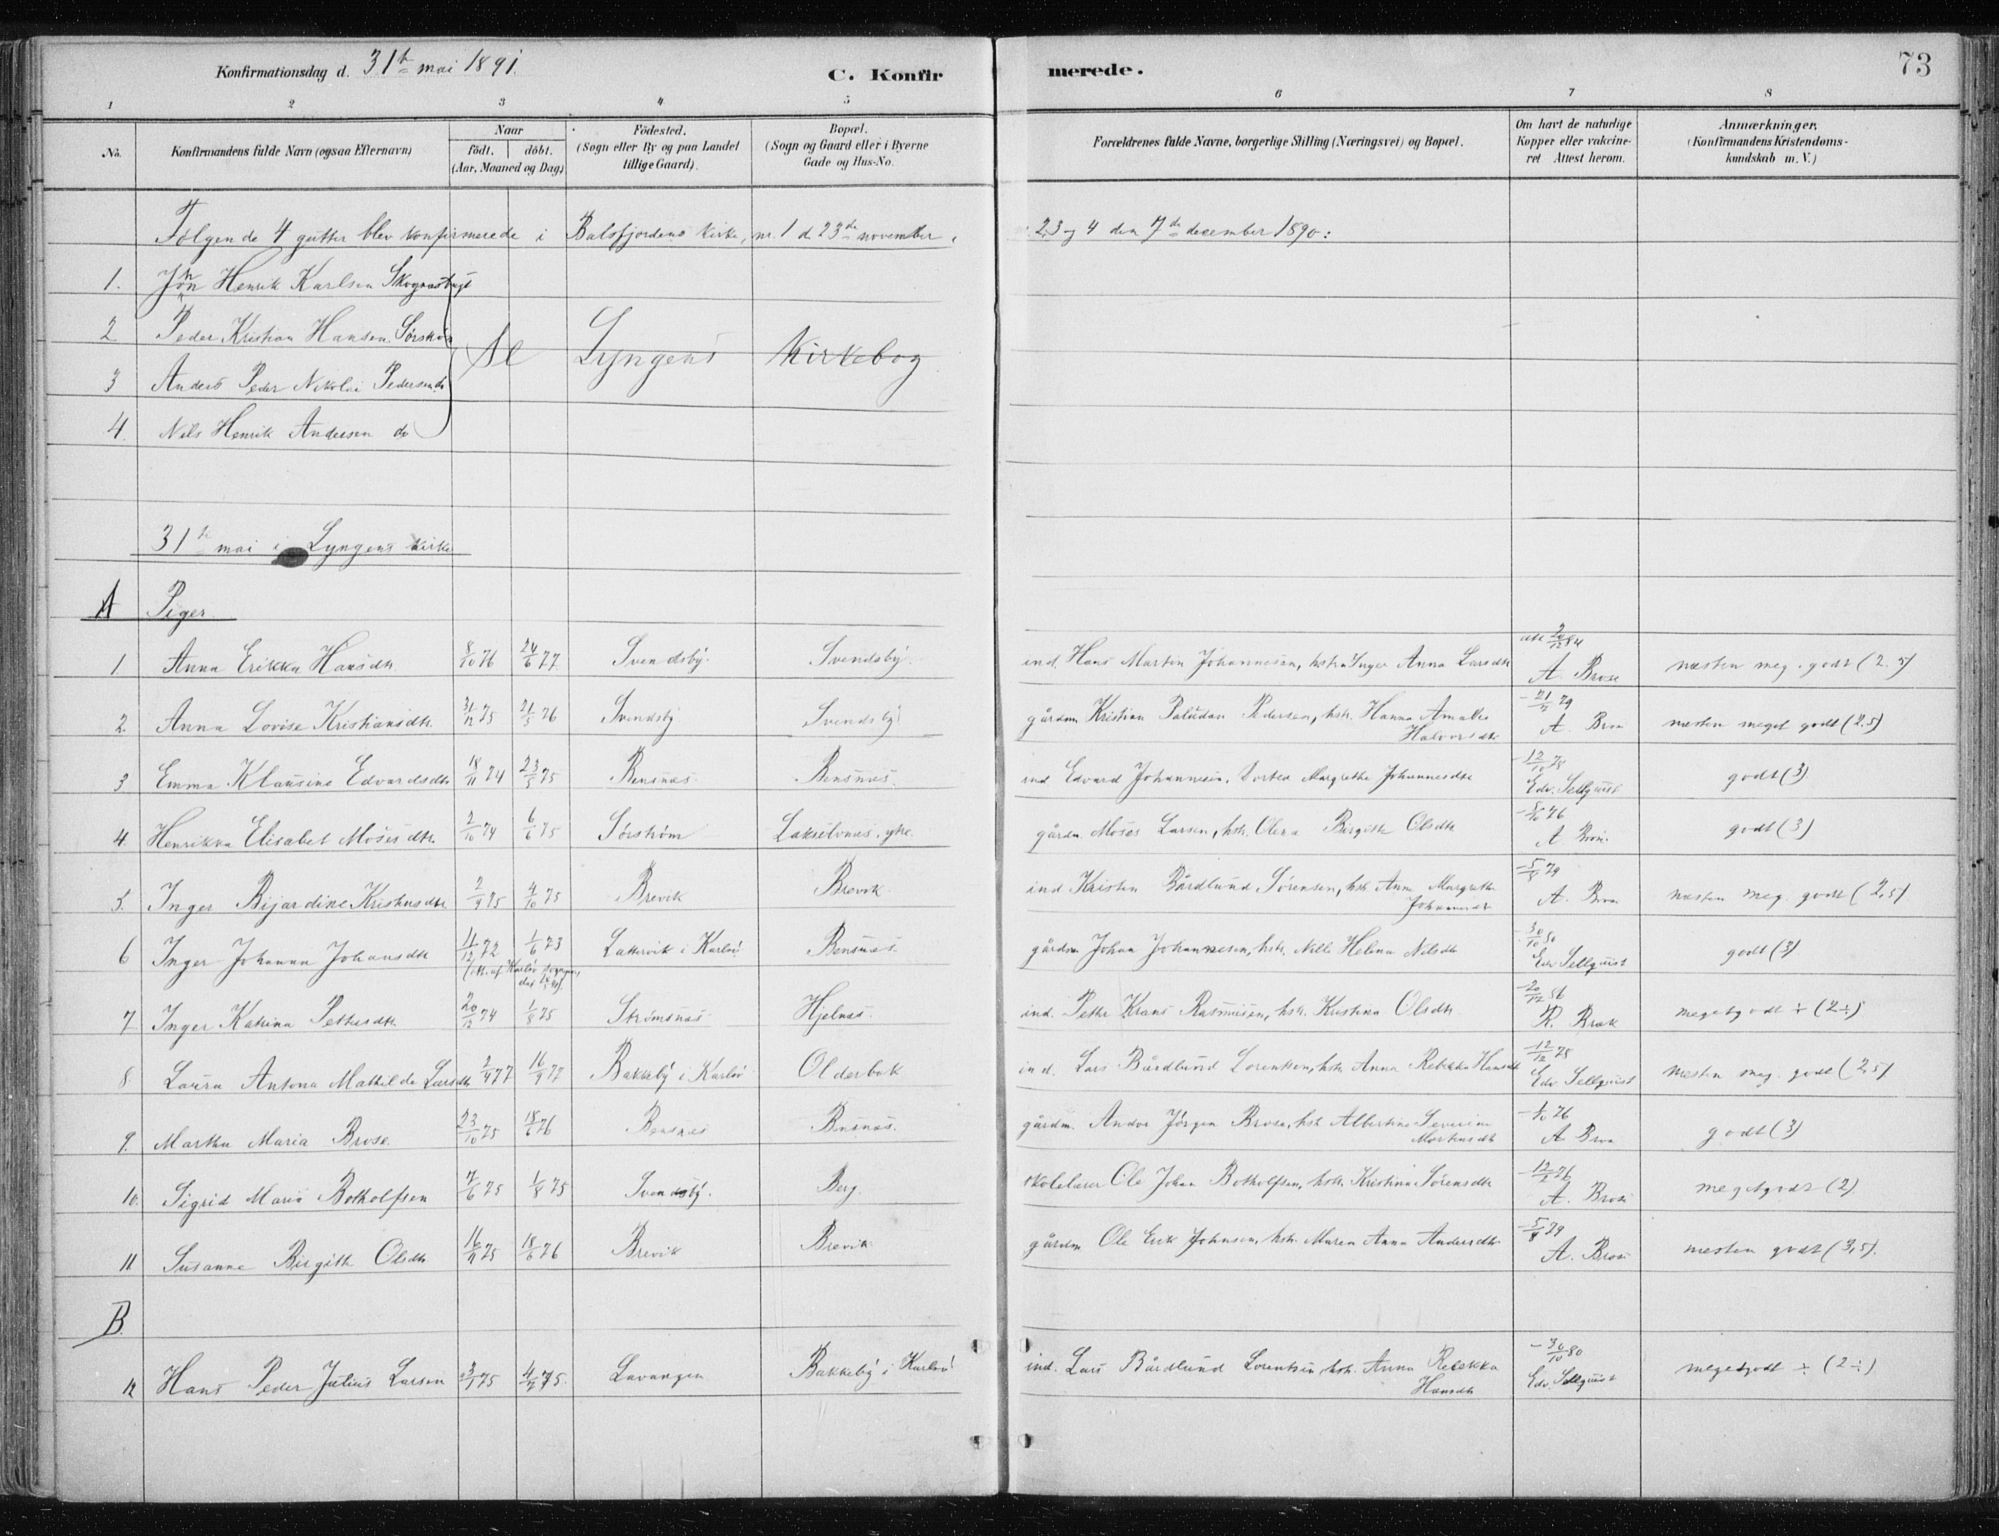 Konfirmationsdag d. 31te mai 1891. C. Konfirmerede. 73
1 2 3 4 5 6 7 8
No. Konfirmandens fulde Navn (ogsaa Efternavn) Naar födt. döbt. (Aar, Maaned og Dag) Födested. (Sogn eller By og paa Landet tillige Gaard). Bopæl. (Sogn og Gaard eller i Byerne Gade og Hus-No. Forældrenes fulde Navne, borgerlige Stilling (Næringsvei) og Bopæl. Om havt de naturlige Kopper eller vakcineret Attest herom. Anmærkninger. (Konfirmandens Kristendomskundskab m. V.)
Følgende 4 gutter blev konfirmerede i Balsfjordens kirke, nr. 1 d. 23de november, 2, 3 og 4 den 7de december 1890:
1. John Henrik Karlsen
2 Peder Kristian Hansen
3 Anders Peder Nikolai Pedersen do
4. Nils Henrik Andersen do
Se Lyngens Kirkebog
31te mai i Lyngens kirke
A Piger
1 Anna Erikka Hansdtr. 8/10 76 24/6 77 Svendsby. Svendsby. ind. Hans Morton Johannesen, hstr. Inger Anna Larsdtr A. Brose næsten meg. godt (2.5)
2. Anna Lovise Kristiansdtr. 31/12 75 21/5 76 Svendsby Svendsby gårdm. Kristian Paludan Pedersen, hstr. Hanna Amalie Halvorsdtr 79 næsten meget godt (2.5)
3 Emma Klausine Edvardsdtr. 18/11 74 23/5 75 Bensnæs Bensnæs. ind Edvard Johannesen, Dortea Margrethe Johannesdtr 12/10 75 Edv. Sellquist godt (3)
4. Henrikka Elisabet Mosesdtr. 2/10 74 6/6 75 Sørstrøm Lakselvnæs, ytre. gårdm. Moses Larsen, hstr. Olena Birgitte Olsdtr 76 godt (3)
5. Inger Bijardine Kristensdtr 2/9 75 4/10 75 Brevik Brevik ind Kristen Bårdlund Sørensen, hstr. Anne Margrethe 5/8 79 næsten meg. godt (2,5)
6 Inger Johanna Johansdtr 11/12 72 1/6 73 Lattervik i Karlsö Bensnæs. gårdm. Johan Johannesen, hstr. Nelli Helena Nilsdtr 30/10 80 Edv. Sellquist godt (3)
7 Inger Katrina Pettersdtr. 20/12 74 1/8 75 Strømsnæs Hjelnæs. ind. Petter Krans Rasmusen, hstr. Kristina Olsdtr 20/12 R. Brak megetgodt ÷ (2÷)
8. Laura Antona Mathilde Larsdtr 2/4 77 16/9 77 Bakkeby i Karlsö Olderbak ind. Lars Bårdlund Lorentsen, hstr Anna Rebekka Hansdtr 12/12 75 Edv Sellquist næsten meg. godt (2,5)
9. Martha Maria Brose. 23/10 75 18/6 76 Bensnes Bensnæs. gårdm. Andor Jörgen Brose, hstr. Albertine Severine Mortensdtr 76 godt (3)
10. Sigrid Maria Botholfsen 7/6 75 1/8 75 Svendsby. Berg. skolelærer Ole Johan Botholfsen, hstr. Kristina Sørensdtr 76 A. Brose megetgodt (2)
11 Susanne Birgitte Olsdtr. 16/11 75 18/6 76 Brevik Brevik gårdm Ole Erik Johnsen, hstr. Maren Anna Andersdtr. 5/8 79 A. Brose næsten godt (3,5).
B.
12 Hans Peder Julius Larsen 75 75. Lavangen Bakkeby i Karlsö ind. Lars Bårdlund Lorentsen, hstr. Anna Rebekka Hansdtr 30/10 80 Edv. Sellquist megetgodt ÷ (2÷)